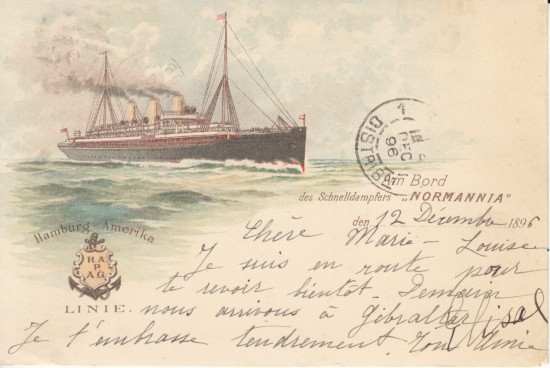 DISTRIB
1
DEC
96
Am Bord
des Schnelldampfers „NORMANNIA"
den 12 Décembre 1896
Hamburg Amerika
H.A.
P.
A.G.
LINIE.
Chère Marie-Louise
Je suis en route pour
te revoir bientôt. Demain
nous arrivons à Gibraltar
Je t'embrasse tendrement. Ton Amie